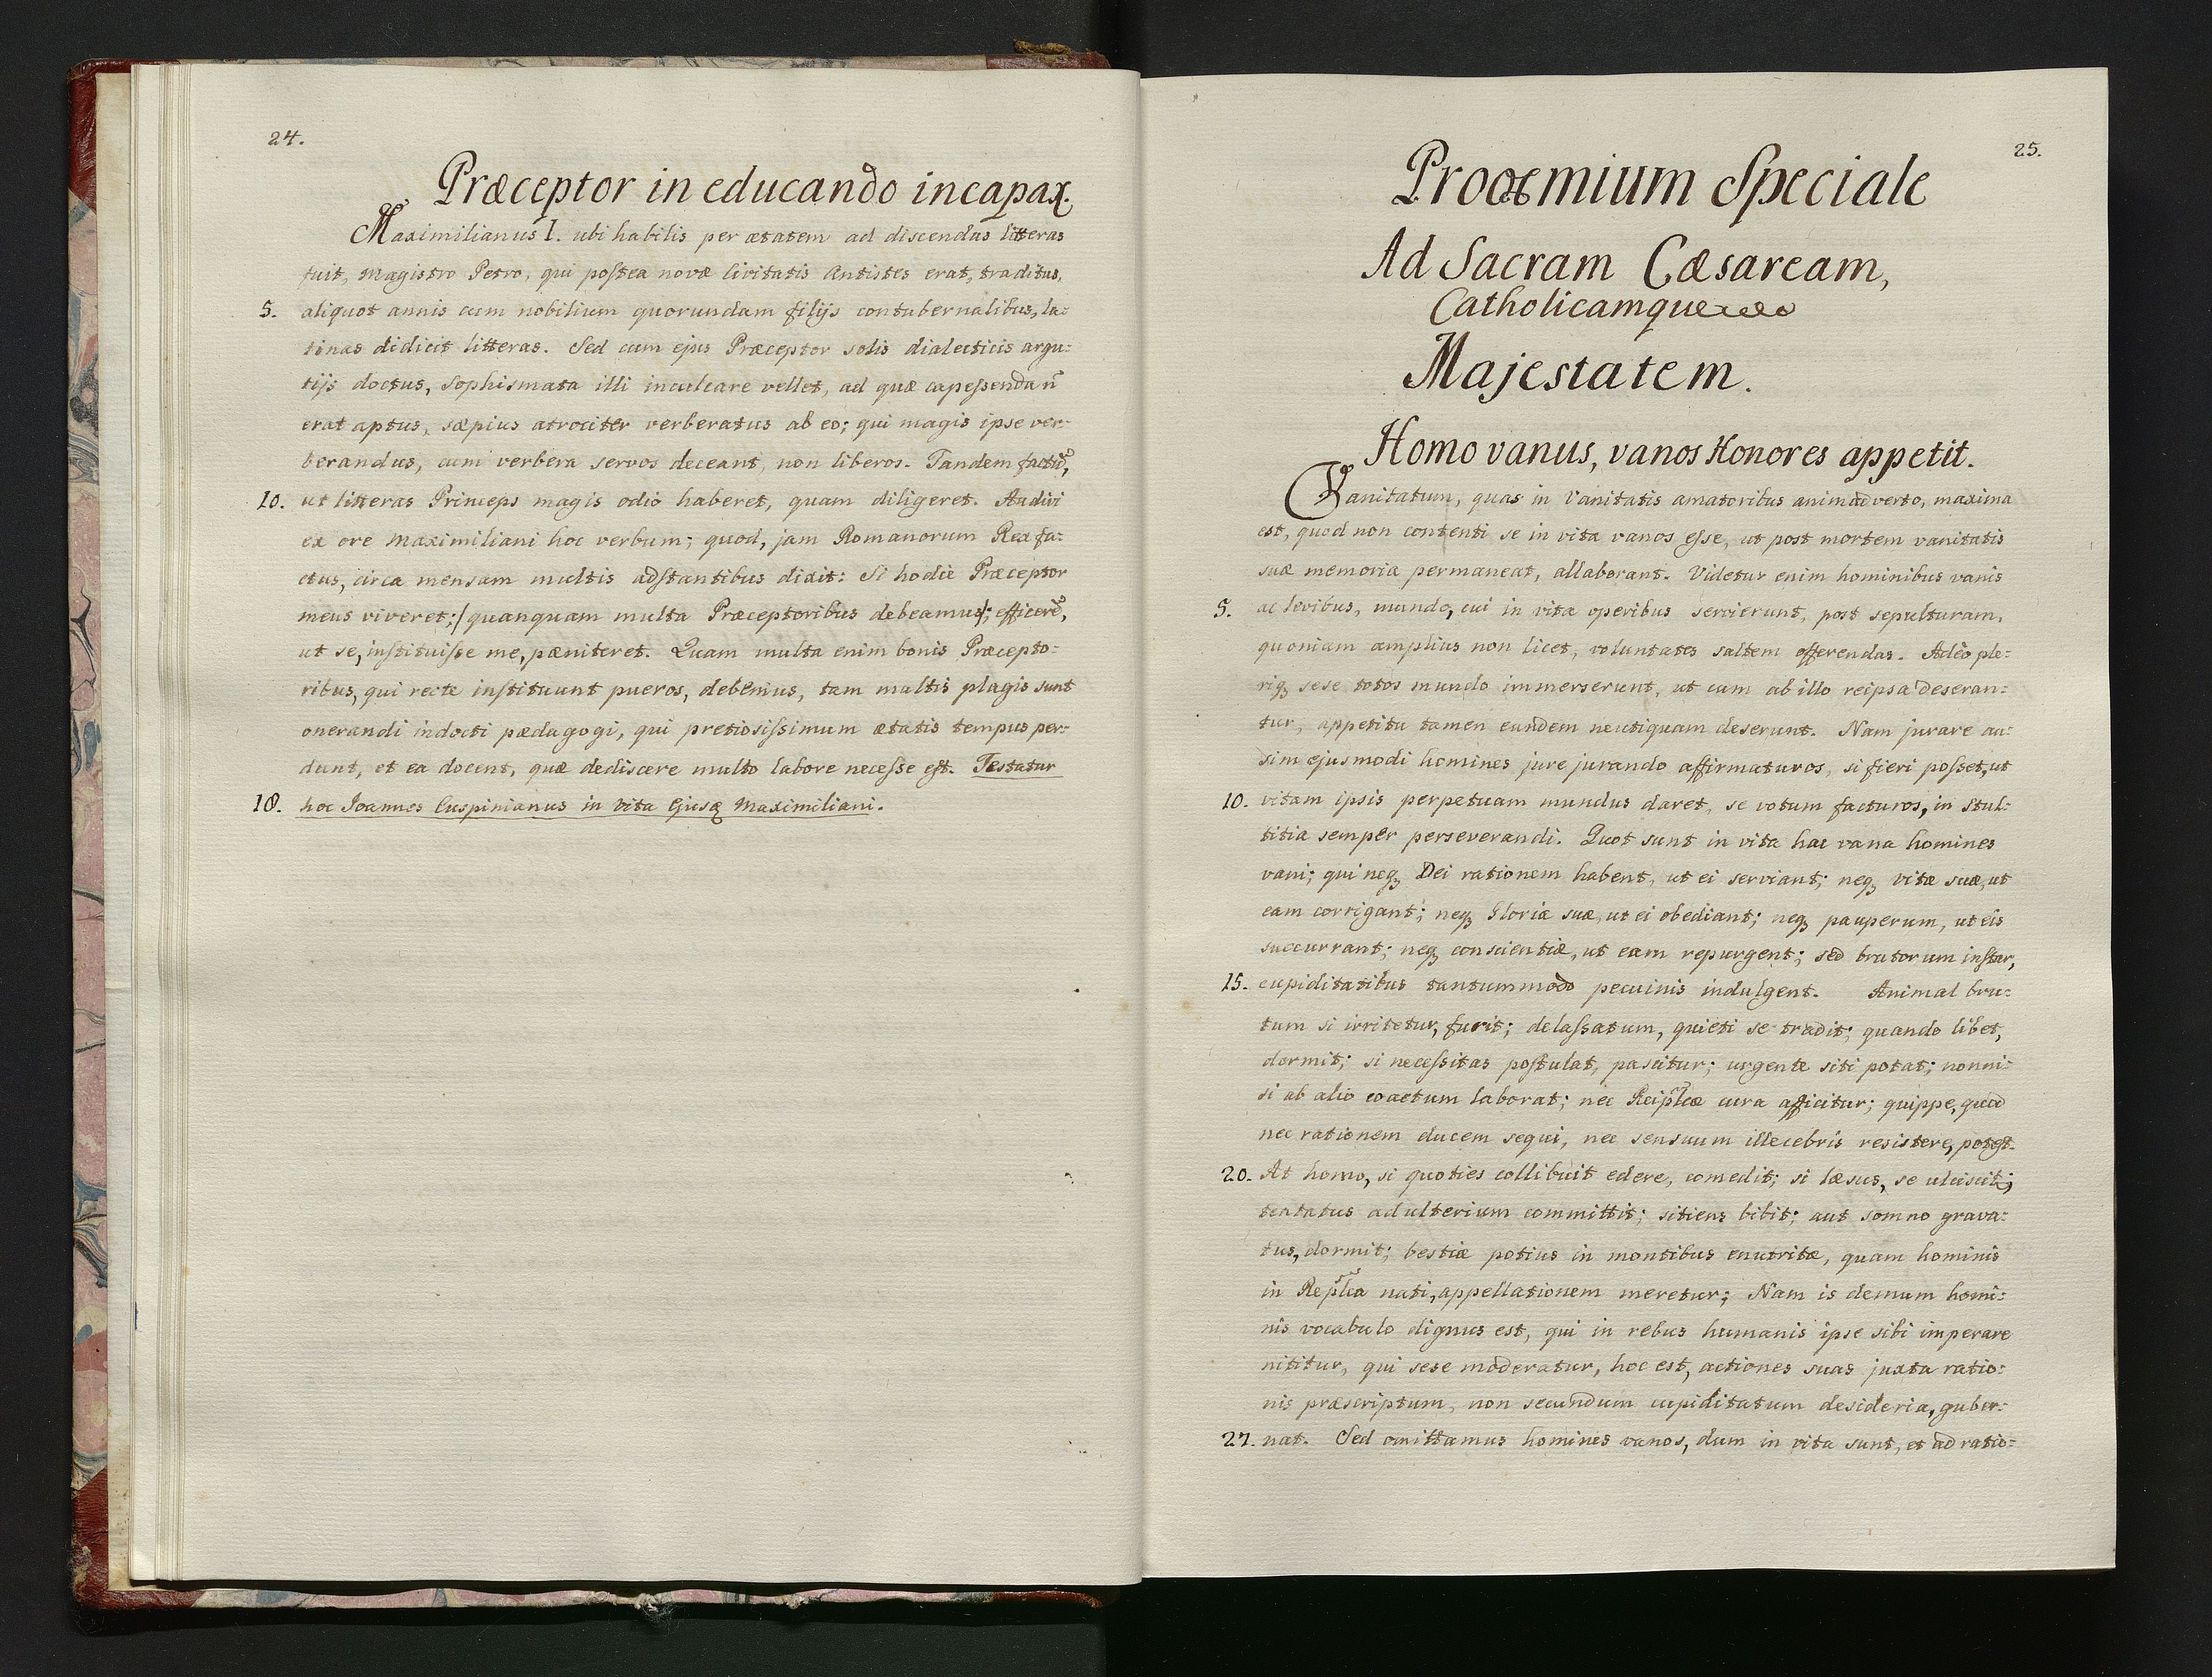 24.
Præceptor in educando incapax.
Maximilianus I. ubi habilis per ætatem ad discendas litteras
fuit, Magistro Petro, qui postea novæ Civitatis Antistes erat, traditus,
5. aliquot annis cum nobilium quorundam filijs contubernalibus, la:
tinas didicit litteras. Sed cum ejus Præceptor solis dialecticis argu:
tijs doctus, Sophismata illi inculcare vellet, ad quæ capessenda n̄
erat aptus, sæpius atrociter verberatus ab eo; qui magis ipse ver:
berandus, cum verbera servos deceant, non liberos. Tandem factū,
10. ut litteras Princeps magis odio haberet, quam diligeret. Audivi
ex ore Maximiliani hoc verbum; quod, jam Romanorum Rex fa:
ctus, circa mensam multis adstantibus dixit: Si hodie Præceptor
meus viveret:/ quanquam multa Præceptoribus debeamus/: efficerē,
ut se, instituisse me, pæniteret. Quam multa enim bonis Præcepto:
ribus, qui recte instituunt pueros, debemus, tam multis plagis sunt
onerandi indocti pædagogi, qui pretiosissimum ætatis tempus per:
dunt, et ea docent, quæ dediscere multo labore necesse est. Testatur
18. hoc Joannes Cuspinianus in vita Ejusq Maximiliani.
25.
Prooemium Speciale
Ad Sacram Cæsaream,
Catholicamque
Majestatem.
Homo vanus, vanos Honores appetit.
Vanitatum, quas in Vanitatis amatoribus animadverto, maxima
est, quod non contenti se in vita vanos esse, ut post mortem vanitatis
suæ memoria permaneat, allaborant. Videtur enim hominibus vanis
5. ac levibus, mundo, cui in vita operibus servierunt, post sepulturam,
quoniam amplius non licet, voluntates saltem offerendas. Adeò ple:
riq, sese totos mundo immerserunt, ut cum ab illo reipsa deseran:
tur, appetitu tamen eundem neutiquam deserunt. Nam jurare au:
sim ejusmodi homines jure jurando affirmaturos, si fieri posset, ut
10. vitam ipsis perpetuam mundus daret, se votum facturos, in stul:
titia semper perseverandi. Quot sunt in vita hac vana homines
vani; qui neq, Dei rationem habent, ut ei serviant; neq, vitæ suæ, ut
eam corrigant; neq, Gloriæ suæ, ut ei obediant; neq, pauperum, ut eis
succurrant; neq, conscientiæ, ut eam repurgent; sed brutorum instar,
15. cupiditatibus tantummodo pecuinis indulgent. Animal bru:
tum si irritetur, furit; delassatum, quieti se tradit; quando libet,
dormit; si necessitas postulat, pascitur; urgente siti potat; nonni:
si ab alio coactum laborat; nec Reiplcæ cura afficitur; quippe, quod
nec rationem ducem sequi, nec sensuum illecebris resistere, potest.
20. At homo, si quoties collibuit edere, comedit; si læsus, se ulciscit;
tentatus adulterium committit; sitiens bibit; aut somno grava:
tus, dormit; bestiæ potius in montibus enutritæ, quam hominis
in Replca nati, appellationem meretur; Nam is demum homi:
nis vocabulo dignus est, qui in rebus humanis ipse sibi imperare
nititur, qui sese moderatur, hoc est, actiones suas juxta ratio:
nis præscriptum, non secundum cupiditatum desideria, guber:
27. nat. Sed omittamus homines vanos, dum in vita sunt, et ad ratio: